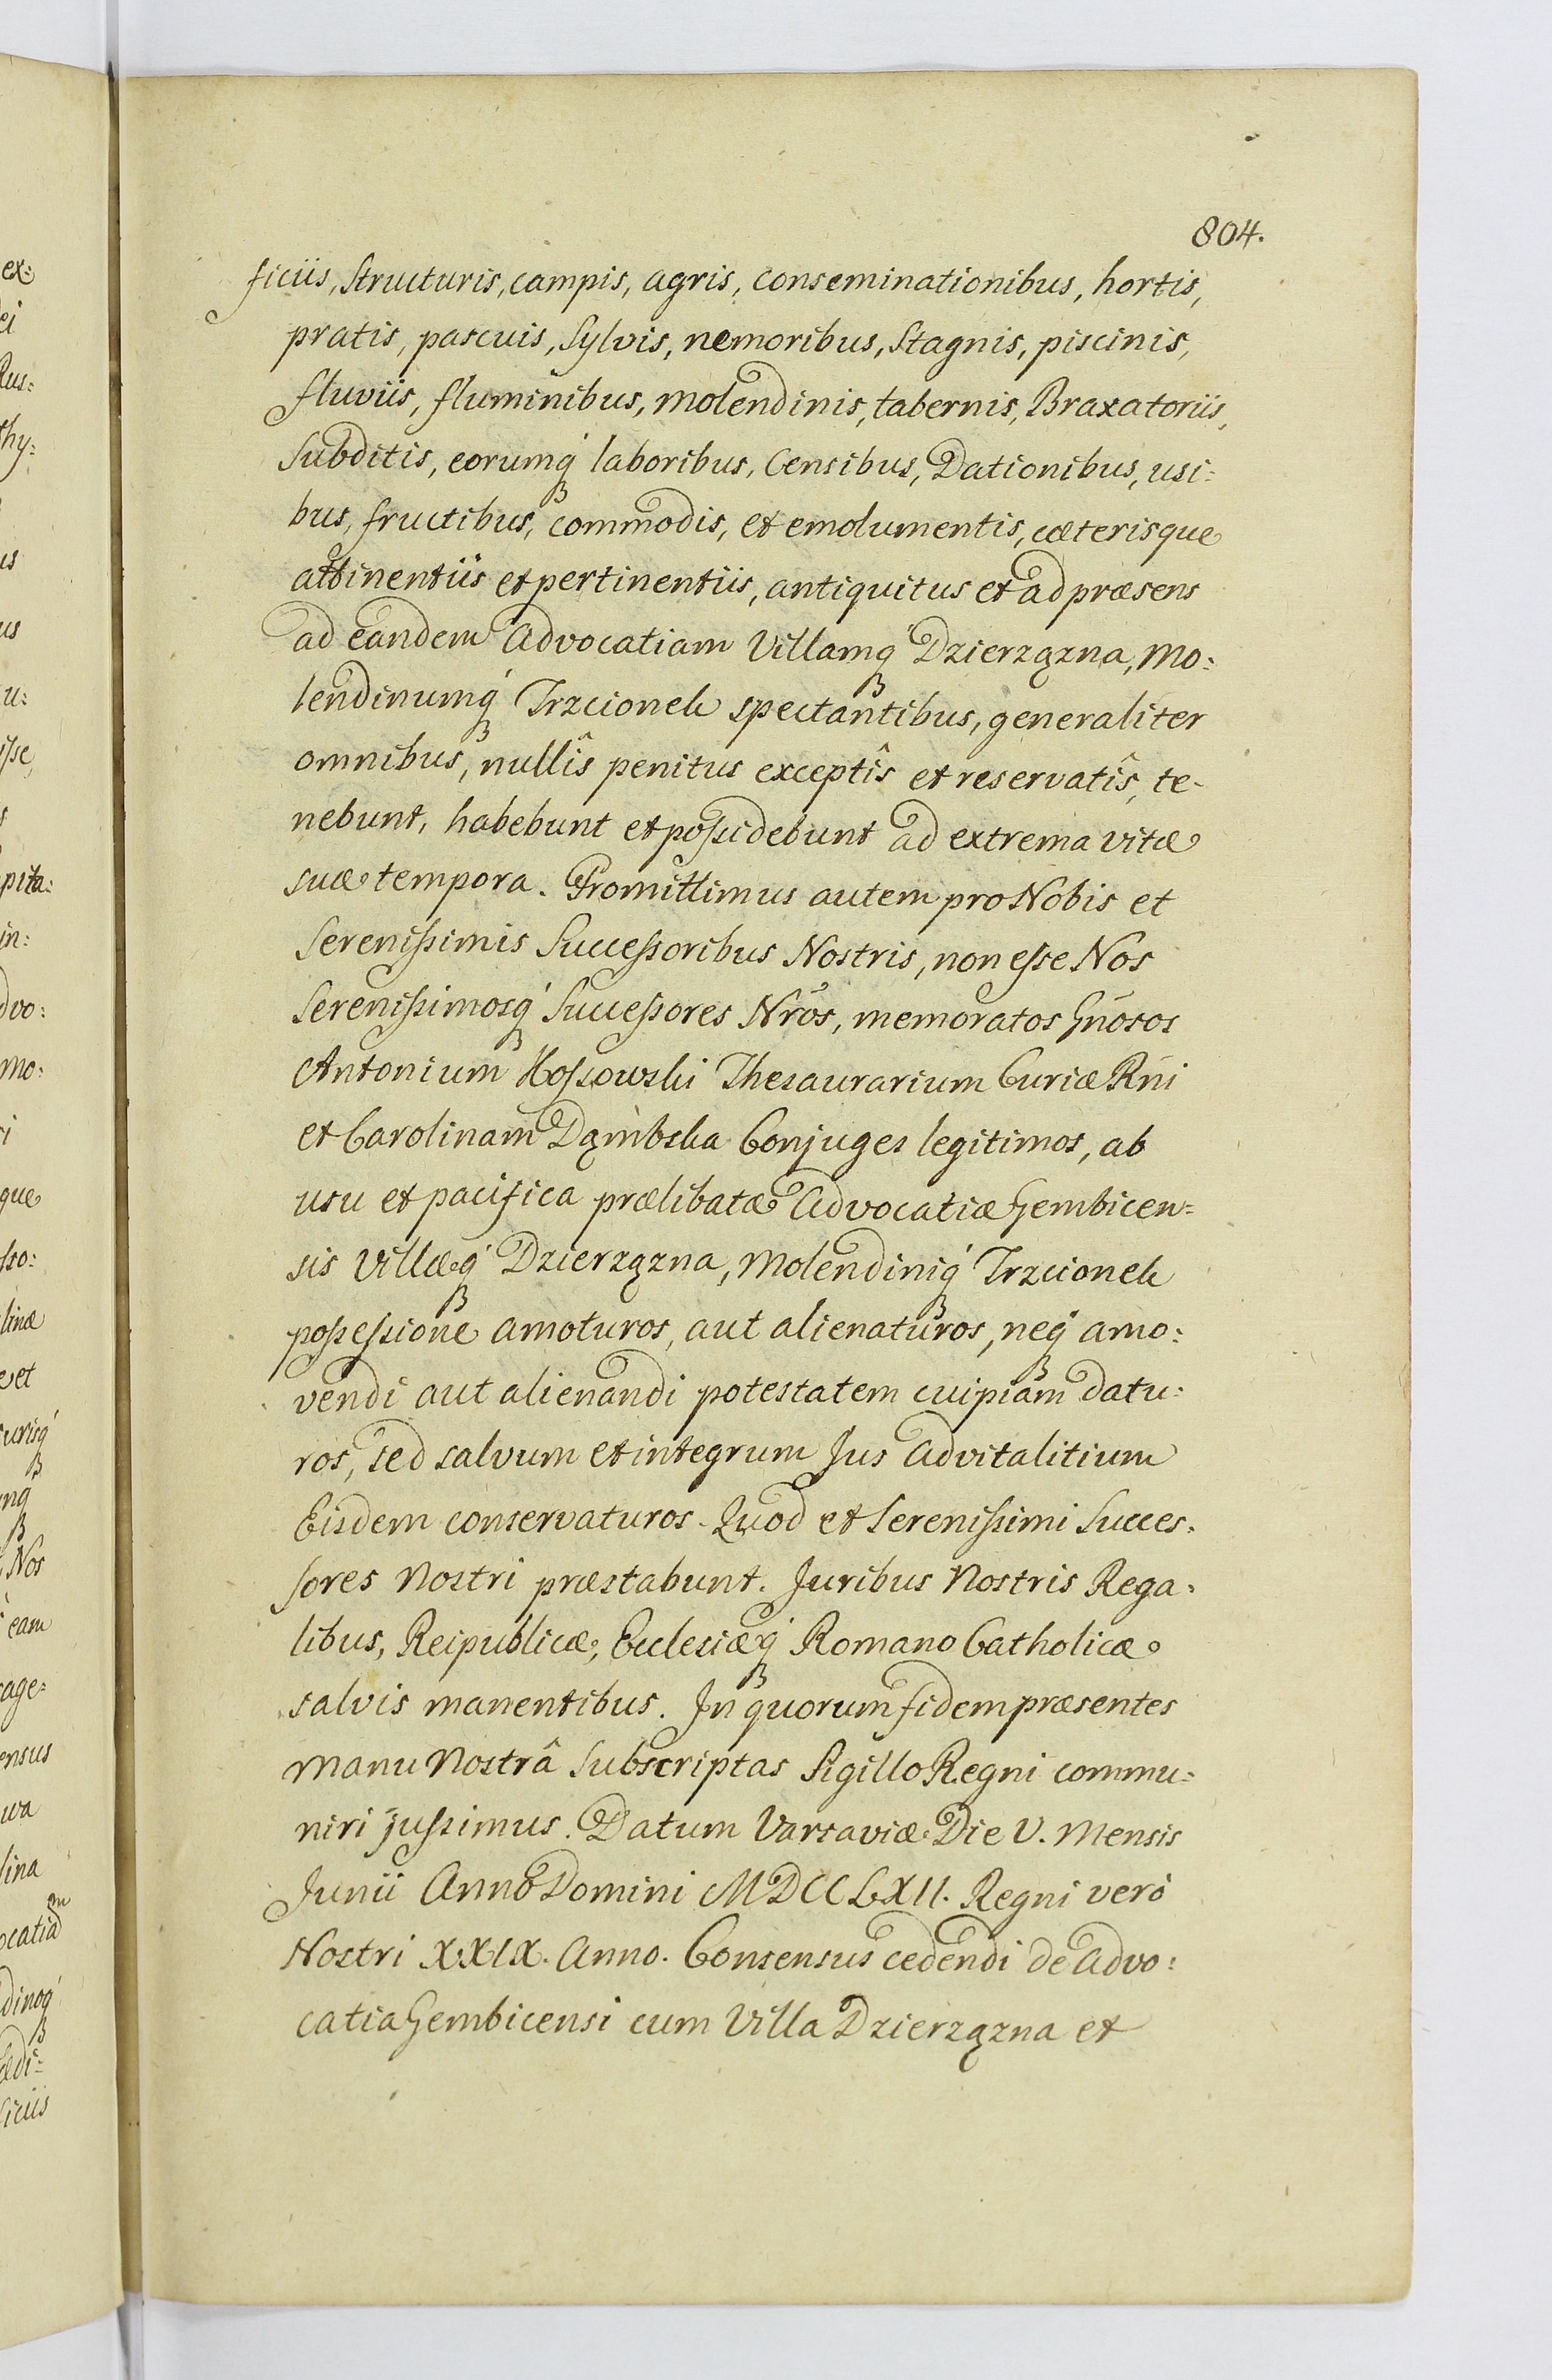 804.
ficiis, Structuris, campis, agris, conseminationibus, hortis,
pratis, pascuis, Sylvis, nemoribus, Stagnis, piscinis,
fluviis, fluminibus, molendinis, tabernis, Braxatoriis,
Subditis, eorumq́ laboribus, Censibus, Dationibus, usi:
bus, fructibus, commodis, et emolumentis, cæterisque
attinentiis et pertinentiis, antiquitus et ad præsens
ad eandem Advocatiam Villamq́ Dzierzązna, Mo:
lendinumq́ Trzcionek spectantibus, generaliter
omnibus, nullîs penitus exceptîs et reservatîs, te-
nebunt, habebunt et possidebunt ad extrema vitæ
suæ tempora. Promittimus autem pro Nobis et
Serenissimis Successoribus Nostris, non esse Nos
Serenissimosq́ Successores Nr̃os, memoratos Gñosos
Antonium Kossowski Thesaurarium Curiæ Rñi
et Carolinam Dąmbska Conjuges legitimos, ab
usu et pacifica prælibatæ Advocatiæ Gembicen=
sis Villæq́ Dzierzązna, Molendiniq́ Trzcionek
possessione amoturos, aut alienaturos, neq́ amo:
vendi aut alienandi potestatem cuipiam datu:
ros, sed salvum et integrum Jus Advitalitium
Eisdem conservaturos. Quod et Serenissimi Succes.
sores Nostri præstabunt. Juribus Nostris Rega.
libus, Reipublicæ, Ecclesiæq́ Romano Catholicæ
salvis manentibus. In quorum fidem præsentes
Manu Nostrâ Subscriptas Sigillo Regni commu:
niri jussimus. Datum Varsaviæ Die V. Mensis
Junii Anno Domini MDCCLXII. Regni verò
Nostri XXIX. Anno. Consensus cedendi de Advo:
catia Gembicensi cum Villa Dzierzązna et